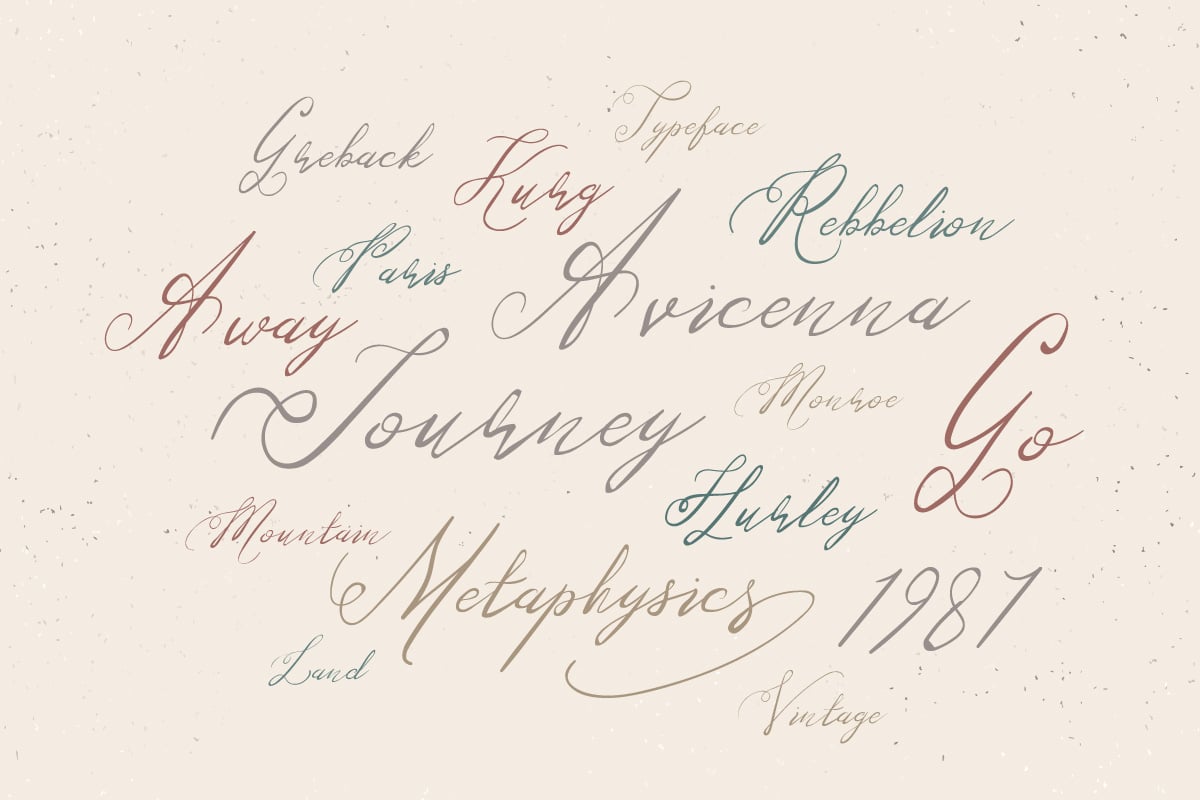 Typeface
Greback
Kurg
Rebbelion
Paris
Away
Avicenna
Monroe
Journey
Go
Hurley
Mountain
Metaphysics
1987
Land
Vintage